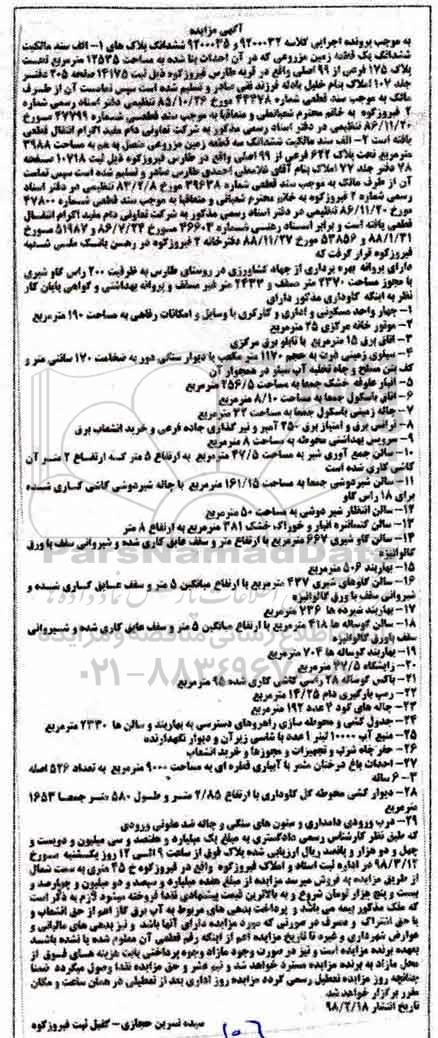 آگهی مزایده
به موجب پرونده اجرایی کلاسه ۹۲۰۰۰۳۲ و ۹۲۰۰۰۳۵ ششدانگ پلاک های ۱- الف سند مالکیت
ششدانگ یک قطعه زمین مزروعی که در آن احداث بنا شده به مساحت ۱۲۵۳۵ مترمربع تحت
پلاک ۱۷۵ فرعی از ۹۹ اصلی واقع در قریه طارس فیروزکوه ذیل ثبت ۱۴۱۷۵ صفحه ۲۰۵ دفتر
جلد ۱۰۷ املاک بنام خلیل بادله فرزند تقی صادر و تسلیم شده است سپس تمامت آن از طرف
مالک به موجب سند قطعی شماره ۴۴۴۷۸ مورخ ۸۵/۱۰/۲۶ تنظیمی دفتر اسناد رسمی شماره
۲ فیروزکوه به خانم محترم شعبانعلی و متعاقبا به موجب سند قطعی شماره ۴۷۷۹۹ مورخ
۸۶/۱۱/۲۰ تنظیمی در دفتر اسناد رسمی مذکور به شرکت تعاونی دام مفید اکرام انتقال قطعی
یافته است ۲- الف سند مالکیت ششدانگ سه قطعه زمین مزروعی متصل به هم به مساحت ۳۹۸۸
مترمربع تحت پلاک ۶۴۲ فرعی از ۹۹ اصلی واقع در طارس فیروزکوه ذیل ثبت ۱۰۷۱۸ صفحه
۷۸ دفتر جلد ۷۷ املاک بنام آقای غلامعلی احمدی طارس صادر و تسلیم شده است سپس تمامت
آن از طرف مالک به موجب سند قطعی شماره ۳۹۶۳۸ مورخ ۸۳/۲/۸ تنظیمی در دفتر اسناد
رسمی شماره ۲ فیروزکوه به خانم محترم شعبانی و متعاقبا به موجب سند قطعی شماره ۴۷۸۰۰
مورخ ۸۶/۱۱/۲۰ تنظیمی در دفتر اسناد رسمی مذکور به شرکت تعاونی دام مفید اکرام انتقال
قطعی یافته است و برابر اسناد رهنی شماره ۴۶۶۰۳ مورخ ۸۶/۷/۲۴ و ۵۱۹۸۷ مورخ
۸۸/۱/۳۱ و ۵۳۸۵۶ مورخ ۸۸/۱۱/۲۷ دفترخانه ۲ فیروزکوه در رهن بانک ملی شعبه
فیروزکوه قرار گرفت که
دارای پروانه بهره برداری از جهاد کشاورزی در روستای طارس به ظرفیت ۲۰۰ راس گاو شیری
با مجوز مساحت ۲۳۷۰ متر مسقف و ۲۴۳۳ متر غیر مسقف و پروانه بهداشتی و گواهی پایان کار
نظر به اینکه گاوداری مذکور دارای
۱- چهار واحد مسکونی و اداری و کارگری با وسایل و امکانات رفاهی به مساحت ۱۹۰ مترمربع
۲- موتور خانه مرکزی ۲۵ مترمربع
۳- اتاق برق ۱۵ مترمربع با تابلو برق مرکزی
۴- سیلوی زمینی ذرت به حجم ۱۱۷۰ متر مکعب با دیوار سنگی دور به ضخامت ۱۷۰ سانتی متر و
کف بتن مسطح و چاه تخلیه آب سیلو در همجوار آن
۵- انبار علوفه خشک جمعا به مساحت ۲۵۶/۵ مترمربع
۶- اتاق باسکول جمعا به مساحت ۸/۱۰ مترمربع
۷- چاله زمینی باسکول جمعا به مساحت ۲۲ مترمربع
۸- ترانس برق و امتیاز برق ۲۵۰ آمپر و تیر گذاری جاده فرعی و خرید انشعاب برق
۹- سرویس بهداشتی محوطه به مساحت ۸ مترمربع
۱۰- سالن جمع آوری شیر به مساحت ۴۷/۵ مترمربع به ارتفاع ۵ متر که ارتفاع ۲ متر آن
کاشی کاری شده است
۱۱- سالن شیردوشی جمعا به مساحت ۱۶۱/۱۵ مترمربع با چاله شیردوشی کاشی کاری شده
برای ۱۸ راس گاو
۱۲- سالن انتظار شیر دوشی به مساحت ۵۰ مترمربع
۱۳- سالن کنسانتره انبار و خوراک خشک ۳۸۱ مترمربع به ارتفاع ۸ متر
۱۴- سالن گاو شیری ۶۶۷ مترمربع با ارتفاع متر و سقف عایق کاری شده و شیروانی سقف با ورق
گالوانیزه
۱۵- بهاربند ۵۰۶ مترمربع
۱۶- سالن گاوهای شیری ۴۳۷ مترمربع با ارتفاع میانگین ۵ متر و سقف عایق کاری شده و
شیروانی سقف با ورق گالوانیزه
۱۷- بهاربند شیرده ها ۷۳۶ مترمربع
۱۸- سالن گوساله ها ۴۱۸ مترمربع با ارتفاع میانگین ۵ متر و سقف عایق کاری شده و شیروانی
سقف باورق گالوانیزه
۱۹- بهاربند گوساله ها ۷۰۴ مترمربع
۲۰- زایشگاه ۴۷/۵ مترمربع
۲۱- باکس گوساله ۲۸ راسی کاشی کاری شده ۹۵ مترمربع
۲۲- رمپ بارگیری دام ۱۴/۲۵ مترمربع
۲۳- چاله های کود ۴ عدد ۱۹۲ مترمربع
۲۴- جدول کشی و محوطه سازی راهروهای دسترسی به بهاربند و سالن ها ۲۳۳۰ مترمربع
۲۵- منبع آب ۱۰۰۰۰ لیتر ۱ عدد با شاسی زیرآن و دیوار نگهدارنده
۲۶- حفر چاه شرب و تجهیزات و مجوزها و خرید انشعاب
۲۷- احداث باغ درختان مثمر با آبیاری قطره ای به مساحت ۹۰۰۰ مترمربع به تعداد ۵۲۶ اصله
۳-۶ ساله
۲۸- دیوار کشی محوطه کل گاوداری با ارتفاع ۲/۸۵ متر و طول ۵۸۰ متر جمعا ۱۶۵۳
مترمربع
۲۹- درب ورودی دامداری و ستون های سنگی و چاله ضد عفونی ورودی
که طبق نظر کارشناس رسمی دادگستری به مبلغ یک میلیارد و هفتصد و سی میلیون و دویست و
چهل و دو هزار و پانصد ریال ارزیابی شده پلاک فوق از ساعت ۹ الی ۱۲ روز یکشنبه مورخ
۹۸/۳/۱۲ در اداره ثبت اسناد و املاک فیروزکوه واقع در فیروزکوه خ ۴۵ متری به سمت شمال
از طریق مزایده به فروش میرسد مزایده از مبلغ هفده میلیارد و سیصد و دو میلیون و چهارصد و
بیست و پنج هزار تومان شروع و به بالاترین قیمت پیشنهادی نقدا فروخته میشود لازم به ذکر است
که ملک مذکور بیمه می باشد و پرداخت بدهی های مربوط به آب برق گاز اعم از حق انشعاب و
یا حق اشتراک و مصرف در صورتی که مورد مزایده دارای آنها باشد و نیز بدهی های مالیاتی و
عوارض شهرداری و غیره تا تاریخ مزایده اعم از اینکه رقم قطعی آن معلوم شده یا نشده باشد
بعهده برنده مزایده است و نیز در صورت وجود مازاد وجوه پرداختی بابت هزینه های فوق از
محل مازاد به برنده مزایده مسترد خواهد شد و نیم عشر و حق مزایده نقدا وصول میگردد ضمنا
چنانچه روز مزایده تعطیل رسمی گردد مزایده روز اداری بعد از تعطیلی در همان ساعت و مکان
مقرر برگزار خواهد شد
تاریخ انتشار ۹۸/۲/۱۸
سیده نسرین حجازی - کفیل ثبت فیروزکوه
ParsNamadData
۰۲۱-۸۸۳۴۹۶۷۰